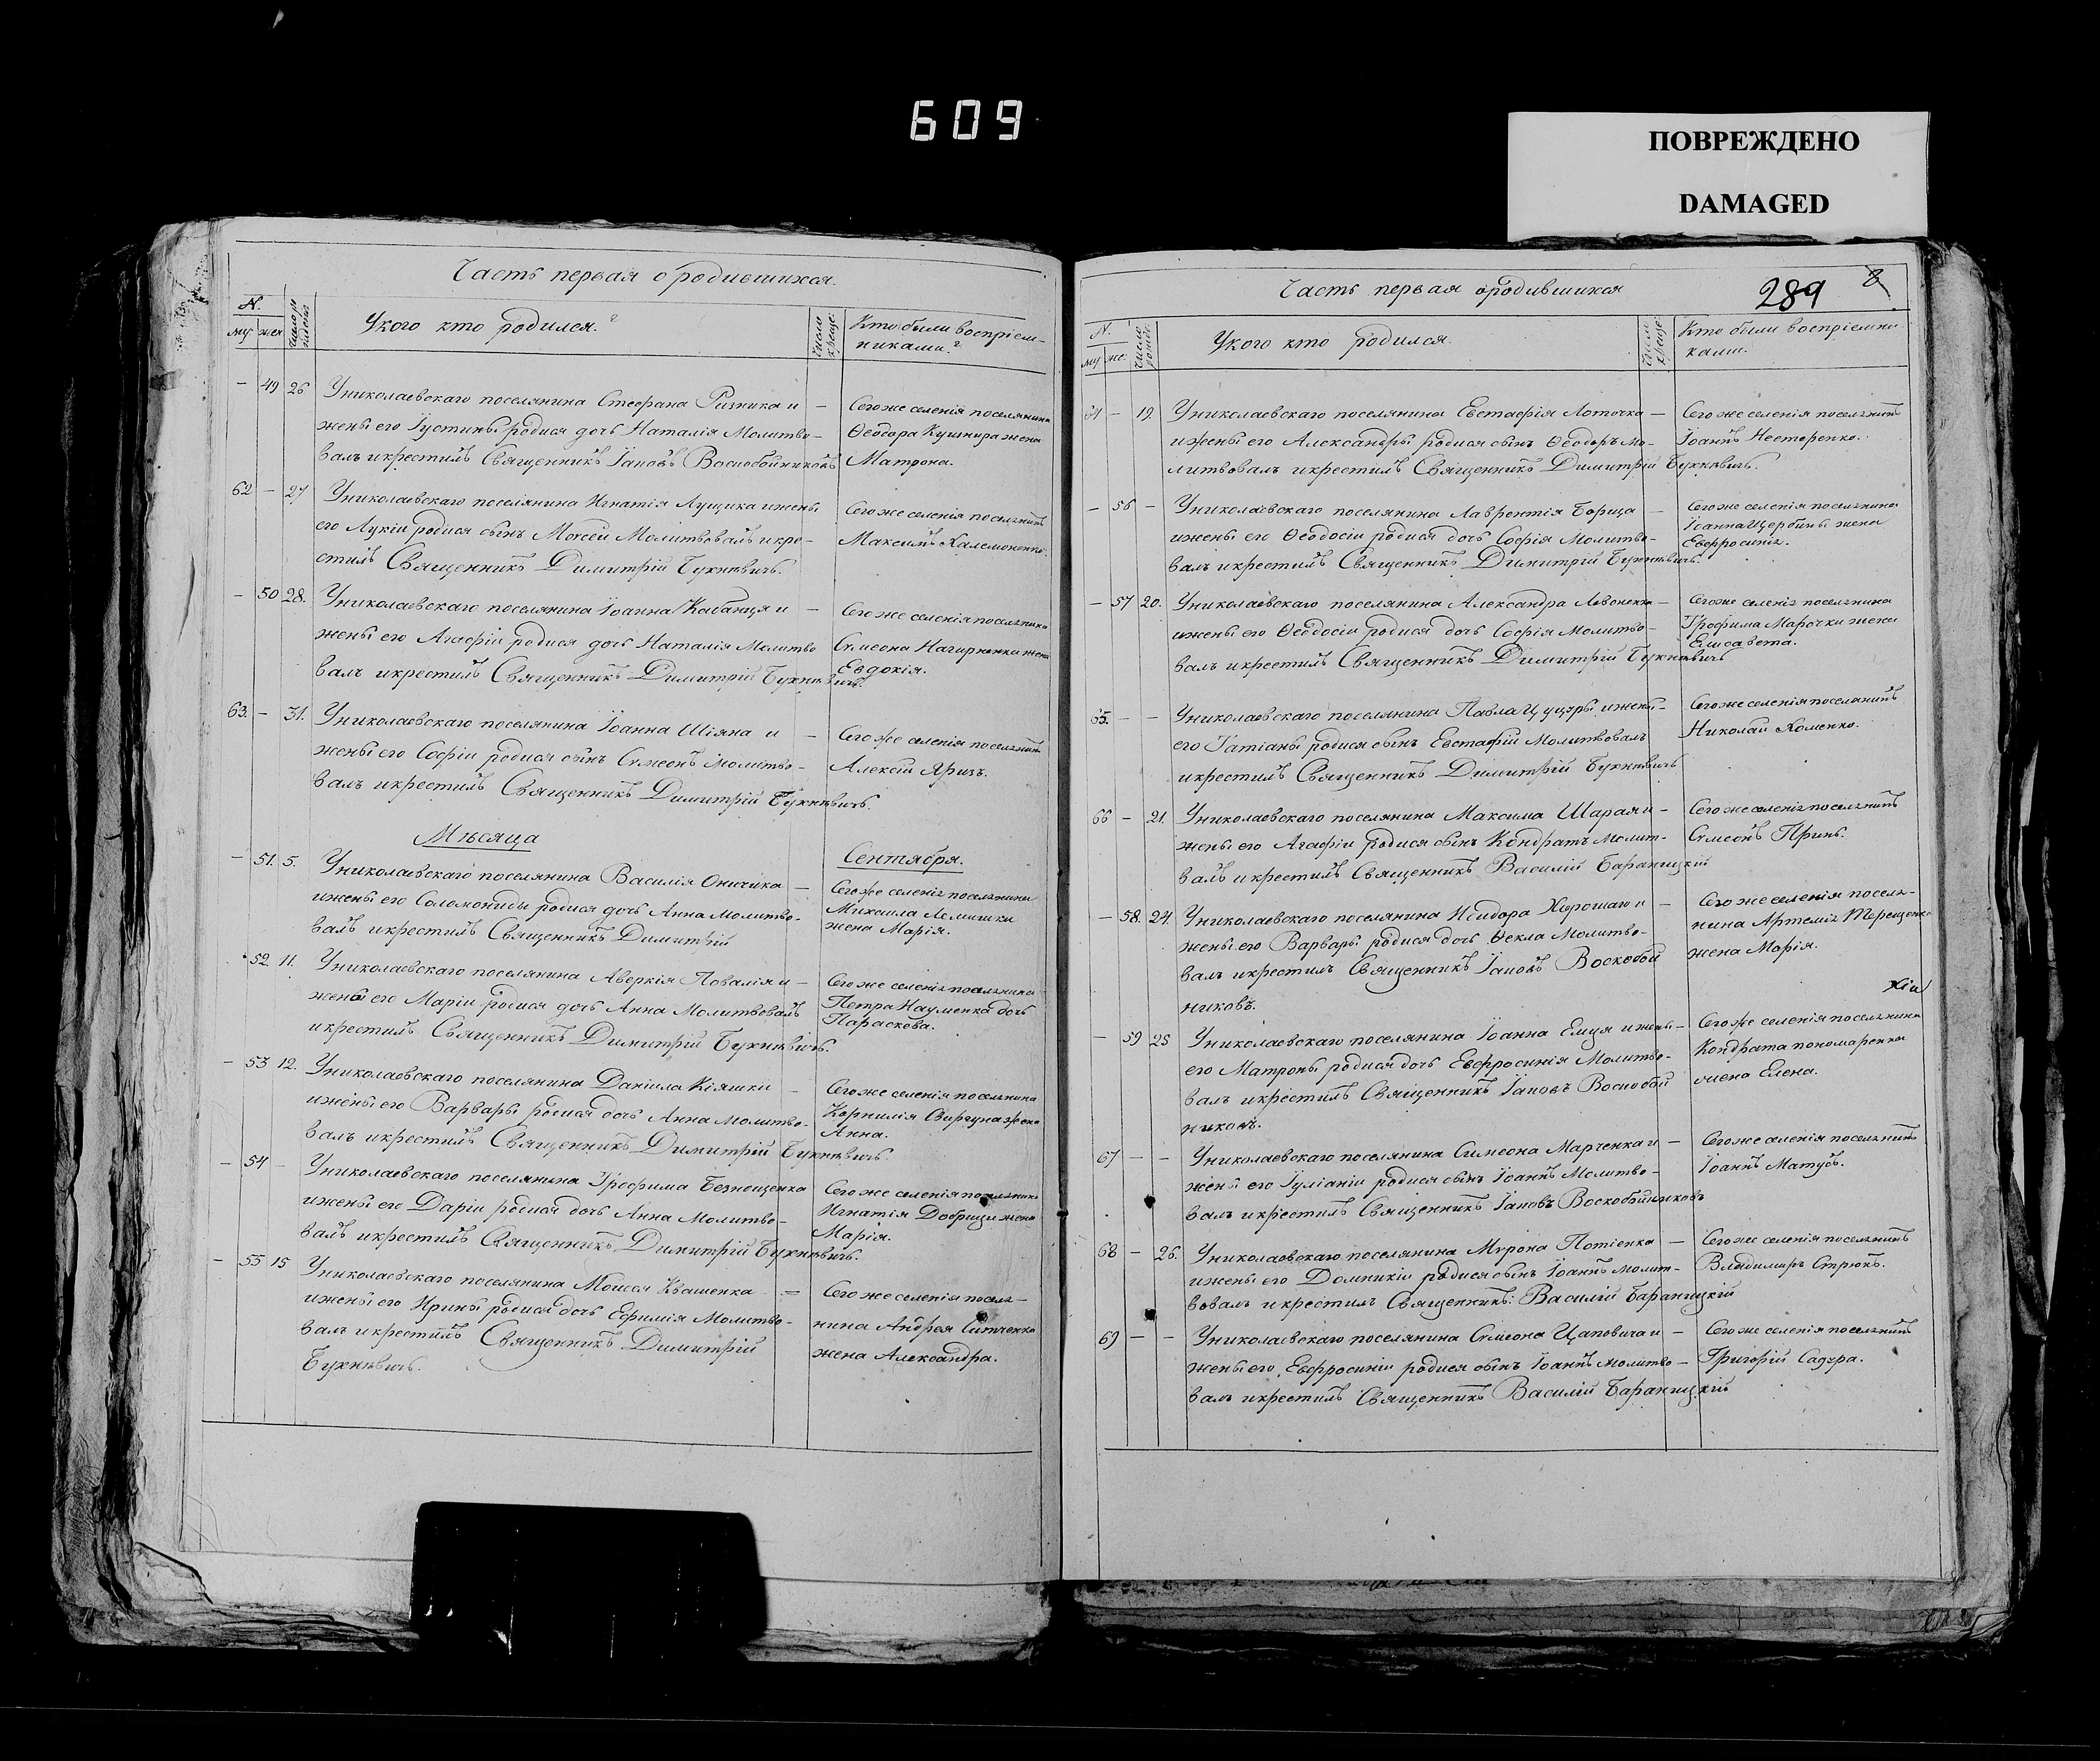 609
ПОВРЕЖДЕНО
DAMAGED
Часть первая о родившихся.
N.
му жен
Укого кто родился?
Кто были воспріем-
никами?
— 49 26
Униколаевскаго поселянина Стефана Ризника и —
жены его Іустины родися дочь Наталія Молитво-
валъ икрестилъ Священникъ Іаковъ Воскобойниковъ
Сегоже селенія поселянина
Ѳеодора Кушнира жена
Матрона.
62 — 27
Униколаевскаго поселянина Игнатія Лущика ижены
его Лукіи родися сынъ Моѵсей Молитвовалъ икре-
стилъ Священникъ Димитрій Букневичъ.
Сегоже селенія поселянинъ
Максимъ
— 50 28.
Униколаевскаго поселянина Іоанна Кабанця и —
жены его Агафіи родися дочь Наталія Молитво
валъ икрестилъ Священникъ Димитрій Букневичъ.
Сегоже селенія поселянина
Сѵмеона Нагирненка жена
Евдокія.
63. — 31.
Униколаевскаго поселянина Іоанна Шіяна и —
жены его Софіи родися сынъ Сѵмеонъ Молитво-
валъ икрестилъ Священникъ Димитрій Букневичъ.
Сегоже селенія поселянинъ
Алексій Яришъ.
Мѣсяца
Сентября.
— 51. 5.
Униколаевскаго поселянина Василія —
ижены его Соломониды родися дочь Анна Молитво-
валъ икрестилъ Священникъ Димитрій
Сегоже селенія поселянина
Михаила Лемишки
жена Марія.
52. 11.
Униколаевскаго поселянина Аверкія Поваляя и —
жены его Маріи родися дочь Анна Молитвовалъ
икрестилъ Священникъ Димитрій Букневичъ.
Сегоже селенія поселянина
Петра Науменка дочь
Параскева.
— 53 12.
Униколаевскаго поселянина Даніила Кіяшки
ижены его Варвары родися дочь Анна Молитво-
валъ икрестилъ Священникъ Димитрій Букневичъ.
Сегоже селенія поселянина
Корнилія Свиргуна жена
Анна.
— 54 —
Униколаевскаго поселянина Трофима Безнощенка
ижены его Даріи родися дочь Анна Молитво-
валъ икрестилъ Священникъ Димитрій Букневичъ.
Сегоже селенія поселянина
Игнатія Добрици жена
Марія.
— 55 15
Униколаевскаго поселянина Моисея Квашенка —
ижены его Ирины родися дочь Ефимія Молитво-
валъ икрестилъ Священникъ Димитрій
Букневичъ.
Сегоже селенія поселя-
нина Андрея Ситченка
жена Александра.
Часть первая ородившихся
289
N.
му. же.
Укого кто родился.
Кто были воспріемни
ками.
64 — 19.
Униколаевскаго поселянина Евстафія Лоточка —
ижены его Александры родися сынъ Ѳеодоръ мо-
литвовалъ икрестилъ Священникъ Димитрій Букневичъ.
Сегоже селенія поселянинъ
Іоаннъ Нестеренко.
— 56 —
Униколаевскаго поселянина Лаврентія Борца —
ижены его Ѳеодосіи родися дочь Софія Молитво-
валъ икрестилъ Священникъ Димитрій Букневичъ.
Сегоже селенія поселянина
Іоанна Щербины жена
Евфросинія.
— 57 20.
Униколаевскаго поселянина Александра Левоненка —
ижены его Ѳеодосіи родися дочь Софія Молитво-
валъ икрестилъ Священникъ Димитрій Букневичъ
Сегоже селенія поселянина
Трофима Марочки жена
Елисавета.
65. — —
Униколаевскаго поселянина Павла Цуцуры ижены —
его Татіаны родися сынъ Евстафій Молитвовалъ
икрестилъ Священникъ Димитрій Букневичъ
Сегоже селенія поселянинъ
Николай Хоменко.
66 — 21.
Униколаевскаго поселянина Максима Шарая и —
жены его Агафіи родися сынъ Кондратъ Молит-
валъ икрестилъ Священникъ Василій Бараницкій
Сегоже селенія поселянинъ
Сѵмеонъ Принь.
— 58. 24.
Униколаевскаго поселянина Исидора Хорошаго и —
жены его Варвары родися дочь Ѳекла Молитво-
валъ икрестилъ Священникъ Іаковъ Воскобой
никовъ.
Сегоже селенія поселя-
нина Артемія Терещенка
жена Марія.
— 59 25
Униколаевскаго поселянина Іоанна Емця ижены —
его Матроны родися дочь Евфросинія Молитво-
валъ икрестилъ Священникъ Іаковъ Воскобой
никовъ.
Сегоже селенія поселянина
Кондрата пономаренка
жена Елена.
67 — —
Униколаевскаго поселянина Симеона Марченка и —
жены его Іуліаніи родися сынъ Іоаннъ Молитво-
валъ икрестилъ Священникъ Іаковъ Воскобойниковъ
Сегоже селенія поселянинъ
Іоаннъ Матусъ.
68 — 26.
Униколаевскаго поселянина Мѵрона Потіенка —
ижены его Домникіи родися сынъ Іоаннъ Молит-
вовалъ икрестилъ Священникъ: Василій Бараницкій
Сегоже селенія поселянинъ
Владимиръ Стрюкъ.
69 — —
Униколаевскаго поселянина Сѵмеона Цаповича и —
жены его Евфросиніи родися сынъ Іоаннъ Молитво —
валъ икрестилъ Священникъ Василій Бараницкій
Сегоже селенія поселянинъ
Григорій Садура.